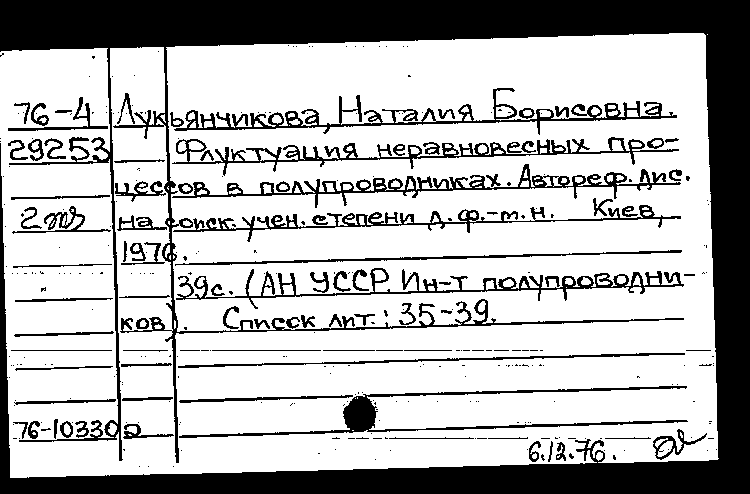 76-4 Лукьянчикова, Наталия Борисовна.
29253 Флуктуация неравновесных про-
цессов в полупроводниках. Автореф. дис.
на соиск. учен. степени д. ф.-м. н. Киев,
1976.
39с. (АН УССР. Ин-т полупроводни-
ков). Список лит.: 35-39.
76-10330
6.12.76.